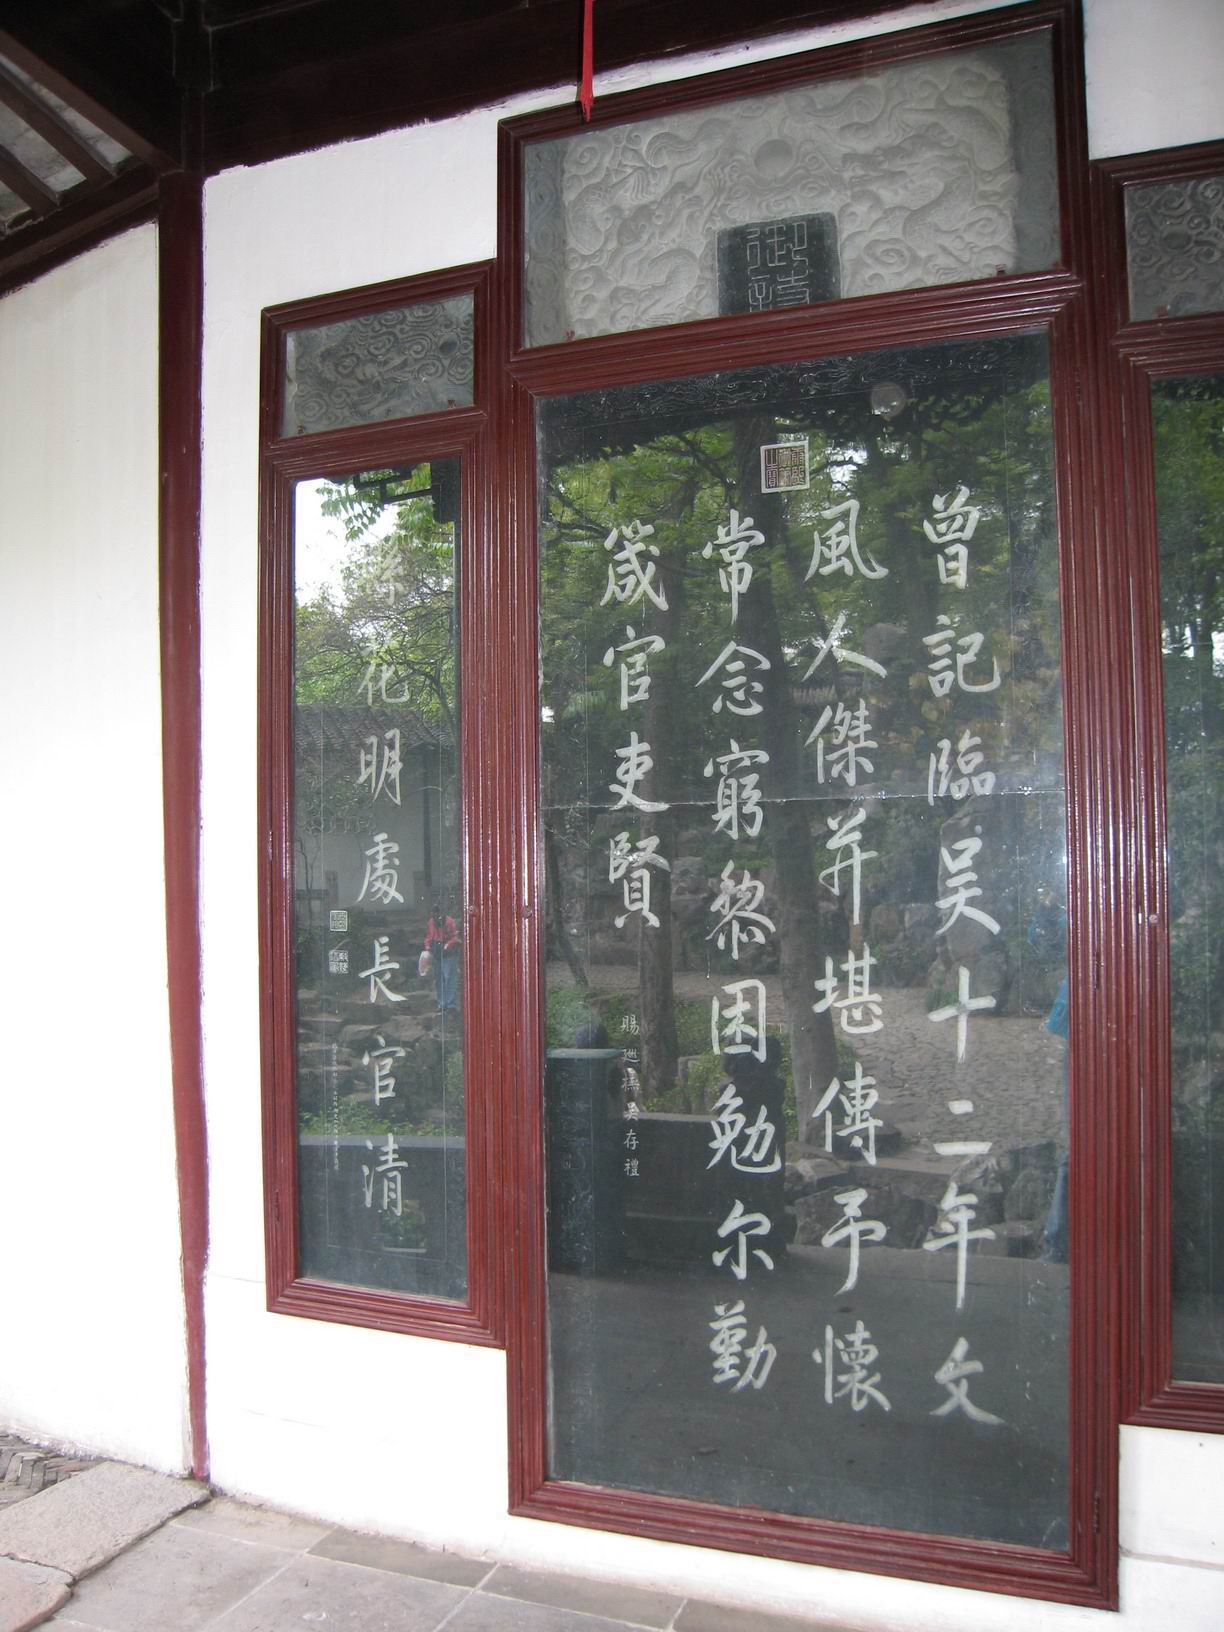 御詩
曾記臨吳十二年文
風人傑并堪傳予懷
常念窮黎困勉尔勤
箴官吏賢
賜廵撫吳存禮
縣花明處長官清